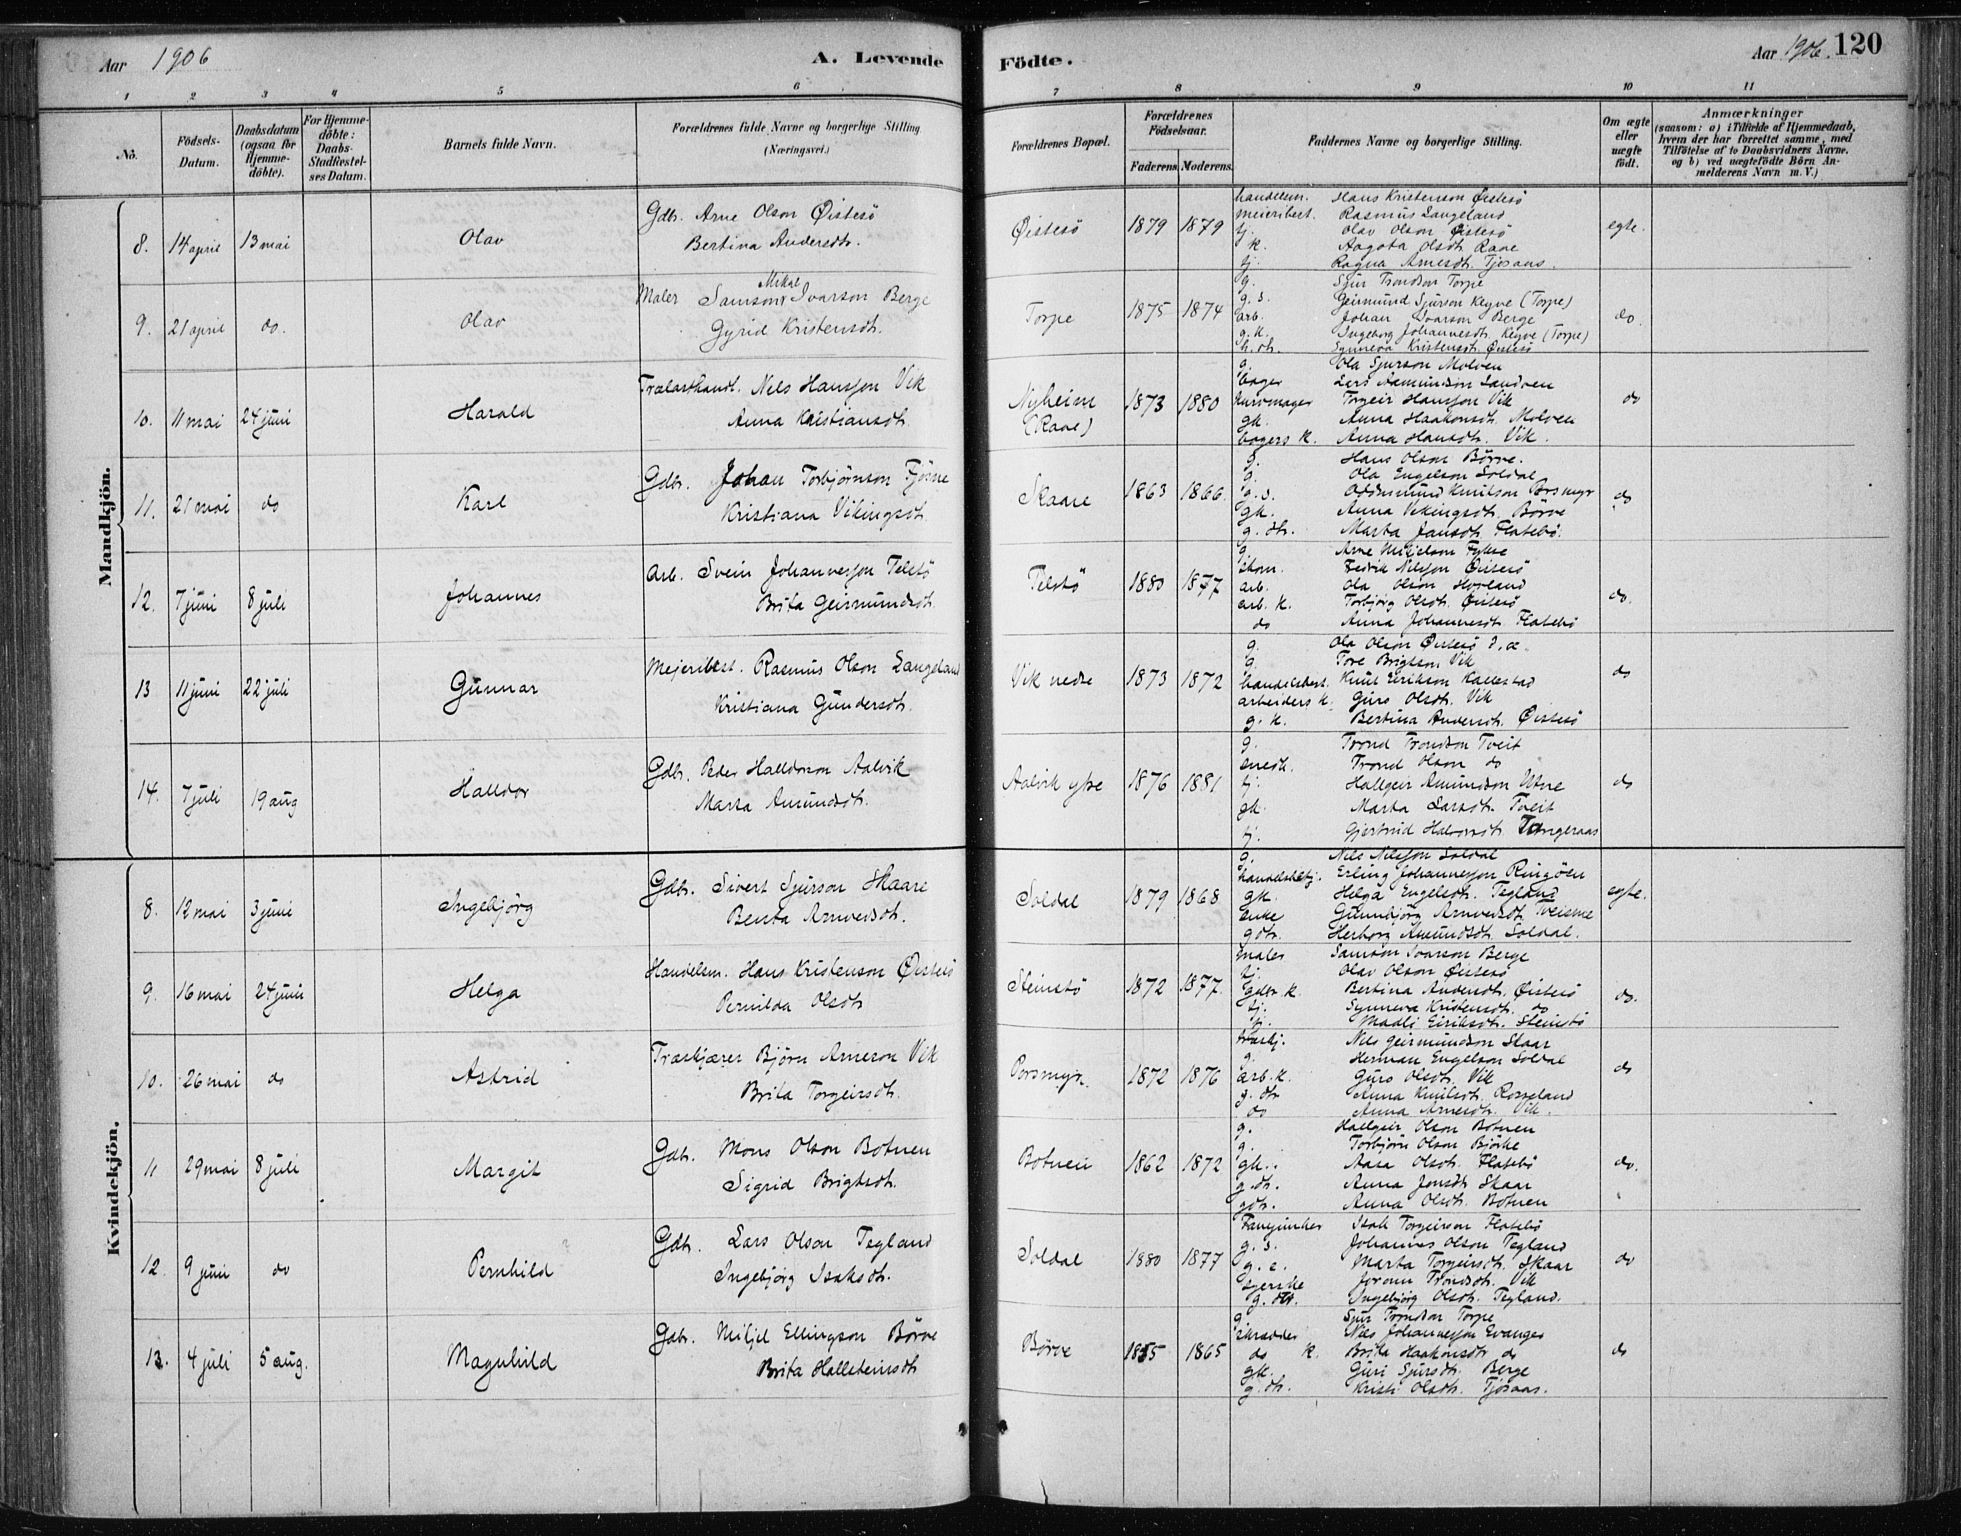 Aar 1906 A. Levende Födte. Aar 1906. 120
1 2 3 4 5 6 7 8 9 10 11
No.
Födsels-Datum.
Daabsdatum (ogsaa för Hjemme-döbte).
For Hjemme-döbte: Daabs-Stadfæstel-ses Datum.
Barnets fulde Navn.
Forældrenes fulde Navne og borgerlige Stilling. (Næringsvei.)
Forældrenes Bopæl.
Forældrenes Födselsaar.
Faderens. Moderens.
Faddernes Navne og borgerlige Stilling.
Om ægte eller uægte födt.
Anmærkninger
(saasom: a) i Tilfælde af Hjemmedaab, hvem der har forrettet samme, med Tilföielse af to Daabsvidners Navne. og b) ved uægtefödte Börn An-melderens Navn m. V.)
Mandkjön.
8. 14 april 13 mai Olav Gdbr. Arne Olson Øistesö
Bertina Andersdtr.
Øistesö 1879 1879 egte.
handelsm. Hans Kristenson Øistesö
meieribest. Rasmus Langeland
tj. Olav Olson Øistesö
k. Aagota Olsdtr. Raae
tj. Ragna Arnesdtr. Tjosaas.
9. 21 april do. Olav Maler Samson Mikal Ivarson Berge
Gyrid Kristensdtr.
Torpe 1875 1874 do.
g. Sjur Trondson Torpe
g.s. Geirmund Sjurson Kegve (Torpe)
arb. Johan Ivarson Berge
g.k. Ingeborg Johannesdtr. Kegve (Torpe)
h.dtr. Synneva Kristensdtr. Øistesö
10. 11 mai 24 juni Harald Trælasthandl. Nels Hansson Vik
Anna Kristiansdtr.
Nyheim (Raae) 1873 1880 do
g. Ola Sjurson Molven
bager Lars Aamundson Sandven
kurvmager Torgeir Hansson Vik
gk. Anna Haakonsdtr. Molven
bagers k. Anna Hansdtr. Vik.
11. 21 mai do Karl Gdbr. Johan Torbjörnson Fjösne
Kristiana Vikingsdtr.
Skaare 1863 1866. do
g. Hans Olson Börve.
g. Ola Engelson Soldal
g.s. Oddmund Knutson Porsmyr
gk. Anna Vikingsdtr. Börve
g.dtr. Marta Jansdtr. Flatebö.
12. 7 juni 8 juli Johannes Arb. Svein Johannesson Telstö
Brita Geirmundsdtr.
Telstö 1880 1877 do.
g. Arne Mikjelson Fykse
Fedrik Nilsson Øistesö
arb. Ola Olson Hovland
arb. k. Torbjörg Olsdtr. Øistesö
do Anna Johannesdtr. Flatebö
13 11 juni 22 juli Gunnar Mejeribest. Rasmus Olson Langeland
Kristiana Gundersdtr.
Vik nedre 1873 1872 do
g. Ola Olson Øistesö d.æ.
g. Tore Brigtson Vik
handelsbest. Knut Eirikson Kallestad
arbeiders k. Guro Olsdtr. Vik
g.k. Bertina Andersdtr. Øistesö
14. 7 juli 19 aug Halldor Gdbr. Peder Halldorson Aalvik
Marta Amundsdtr.
Aalvik yste 1876 1881 do
g. Trond Trondson Tveit
Trond Olson do
tj. Hallgeir Amundson Utne
gk. Marta Larsdtr. Tveit
tj. Gjertrud Halvorsdtr. Tungeraas
Kvindekjön.
8. 12 mai 3 juni Ingebjörg Gdbr. Sivert Sjurson Skaare
Benta Arnvedsdtr.
Soldal 1879 1868 egte.
g. Nils Nilsson Soldal
handelsbetj. Erling Johannesson Ringöen
gk. Helga Engelsdtr. Tegland
enke Gunnbjörg Arnvedsdtr. Tveisme
gdtr. Herborg Amundsdtr. Soldal.
9. 16 mai 24 juni Helga Handelsm. Hans Kristenson Øistesö
Pernilda Olsdtr.
Steinstö 1872 1877. do.
maler Samson Ivarson Berge
tj. Olav Olson Øistesö
gdbr. k. Bertina Andersdtr. Øistesö
tj. Synneva Kristensdtr. do
tj. Madli Eiriksdtr. Steinstö
10. 26 mai do Astrid Træskjærer Björn Arneson Vik
Brita Torgeirsdtr.
Porsmyr. 1872 1876 do
træskj. Nils Geirmundson Skaar
g. Herman Engelson Soldal
arb. k. Guro Olsdtr. Vik
g. dtr. Anna Knutsdtr. Rosseland
do Anna Arnesdtr. Vik.
11 29 mai 8 juli Margit Gdbr. Mons Olson Botnen
Sigrid Brigtsdtr.
Botnen 1862 1872 do.
g. Hallgeir Olson Botnen
g. Torbjörn Olson Björke
gk. Aasa Olsdtr. Flatebö
g.dtr. Anna Jonsdtr. Skaar
gdtr. Anna Olsdtr. Botnen
12. 9 juni do Pernhild Gdbr. Lars Olson Tegland
Ingebjörg Isaksdtr.
Soldal 1880 1877 do
Isak Torgeirson Flatebö
g.s. Johannes Olson Tegland
g.e. Marta Torgeirsdtr. Skaar
syerske Joronn Trondsdtr. Vik
g. dtr. Ingebjörg Olsdtr. Tegland.
13. 4 juli 5 aug. Magnhild Gdbr. Mikjel Ellingson Börve
Brita Hallsteinsdtr
Börve 1855 1865 do
g. Sjur Trondson Torpe
skrædder Nils Johannesson Evanger
do k. Brita Haakonsdtr do
gk. Guri Sjursdtr. Berge
g.dtr. Kristi Olsdtr. Tjosaas.